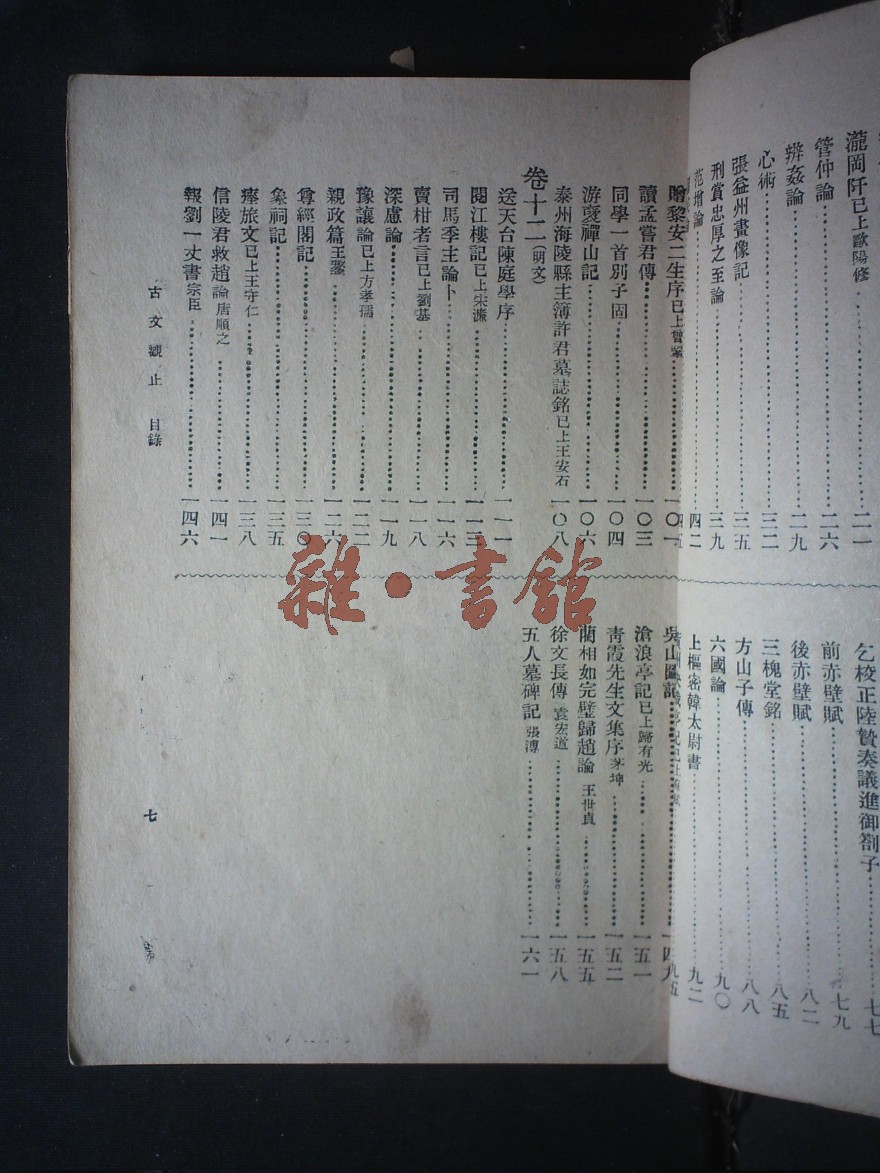 瀧岡阡已上歐陽修 二一
管仲論 二六
辨姦論 二九
心術 三二
張益州畫像記 三五
刑賞忠厚之至論 三九
范增論 四二
乞校正陸贄奏議進御劄子 七七
前赤壁賦 七九
後赤壁賦 八二
三槐堂銘 八五
方山子傳 八八
六國論 九〇
上樞密韓太尉書 九二
贈黎安二生序已上曾鞏 一〇一
讀孟嘗君傳 一〇三
同學一首別子固 一〇四
游褒禪山記 一〇六
泰州海陵縣主簿許君墓誌銘已上王安石 一〇八
卷十二(明文)
送天台陳庭學序 一一一
閱江樓記已上宋濂 一一三
司馬季主論卜 一一六
賣柑者言已上劉基 一一八
深慮論 一一九
豫讓論已上方孝孺 一二二
親政篇王鏊 一二六
尊經閣記 一三〇
象祠記 一三五
瘞旅文已上王守仁 一三八
信陵君救趙論唐順之 一四一
報劉一丈書宗臣 一四六
吳山圖記 一四九
滄浪亭記已上歸有光 一五一
青霞先生文集序茅坤 一五二
藺相如完璧歸趙論 王世貞 一五五
徐文長傳 袁宏道 一五八
五人墓碑記 張溥 一六一
古文觀止 目錄
七
雜·書館